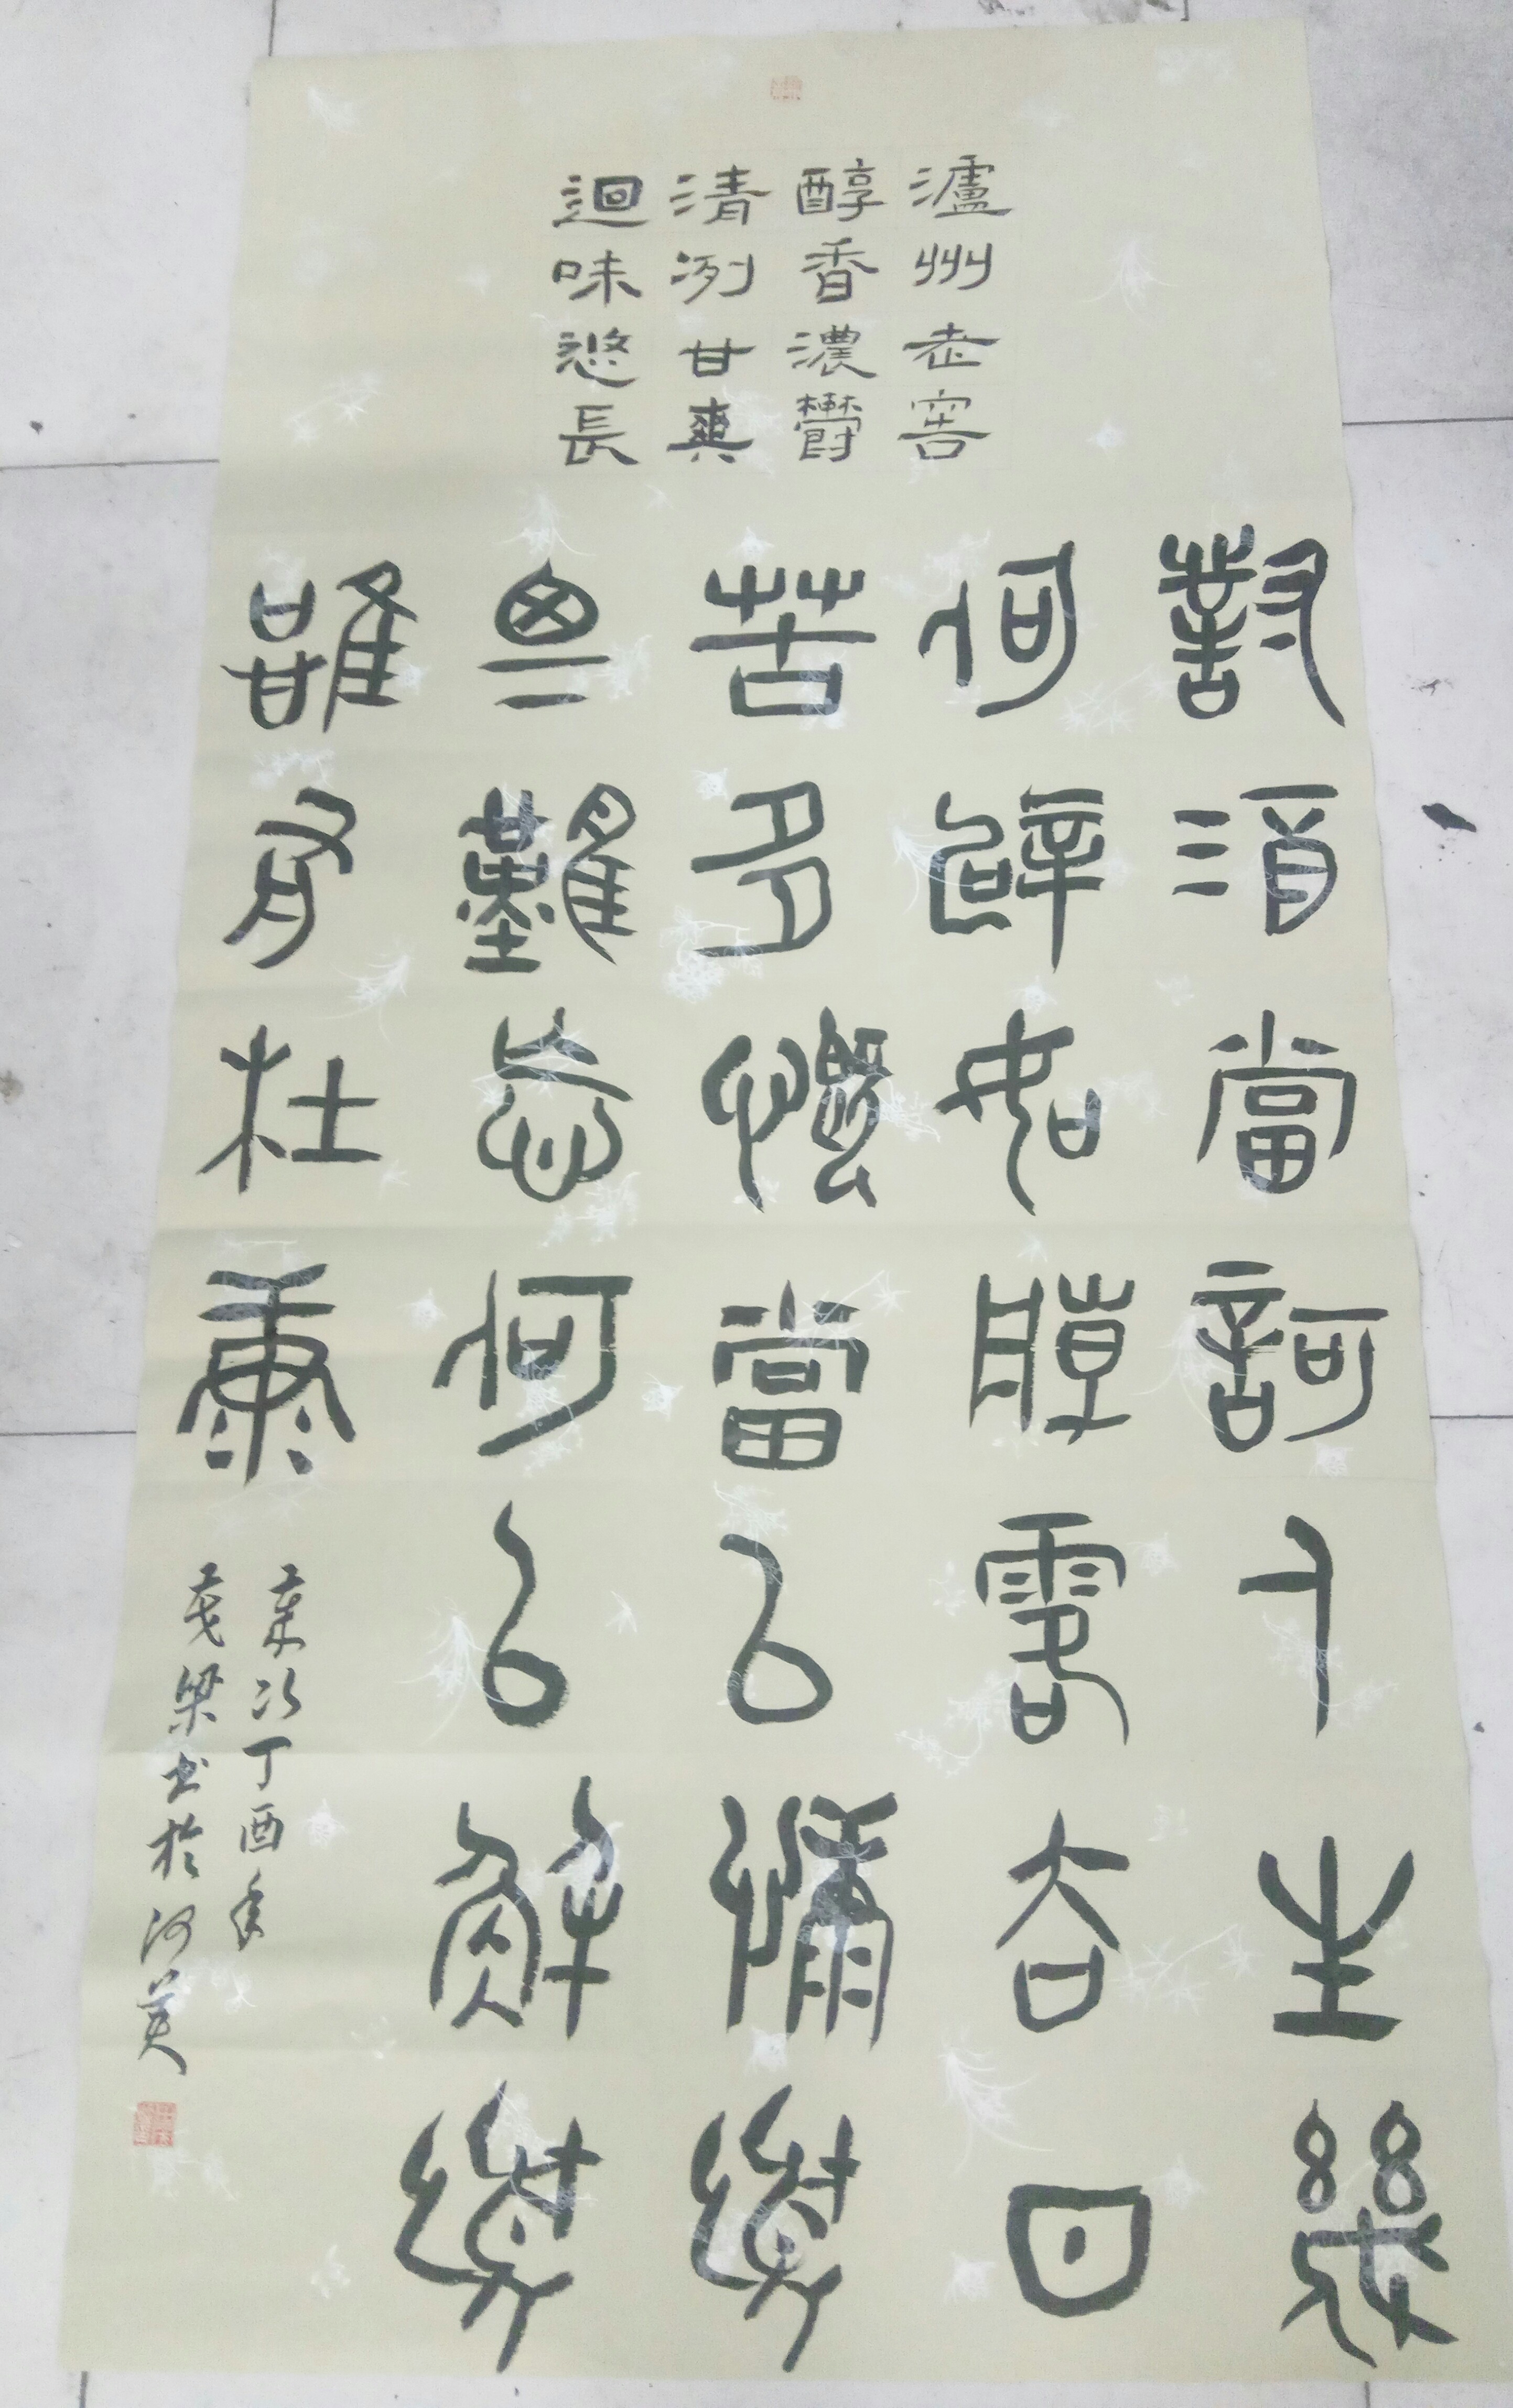 瀘州老窖
醇香濃鬱
清冽甘爽
迴味悠長
對酒當訶人生幾
何辟如朝露去日
苦多慨當以慷憂
思難忘何以解憂
唯有杜康
歲次丁酉年
茂梁书於